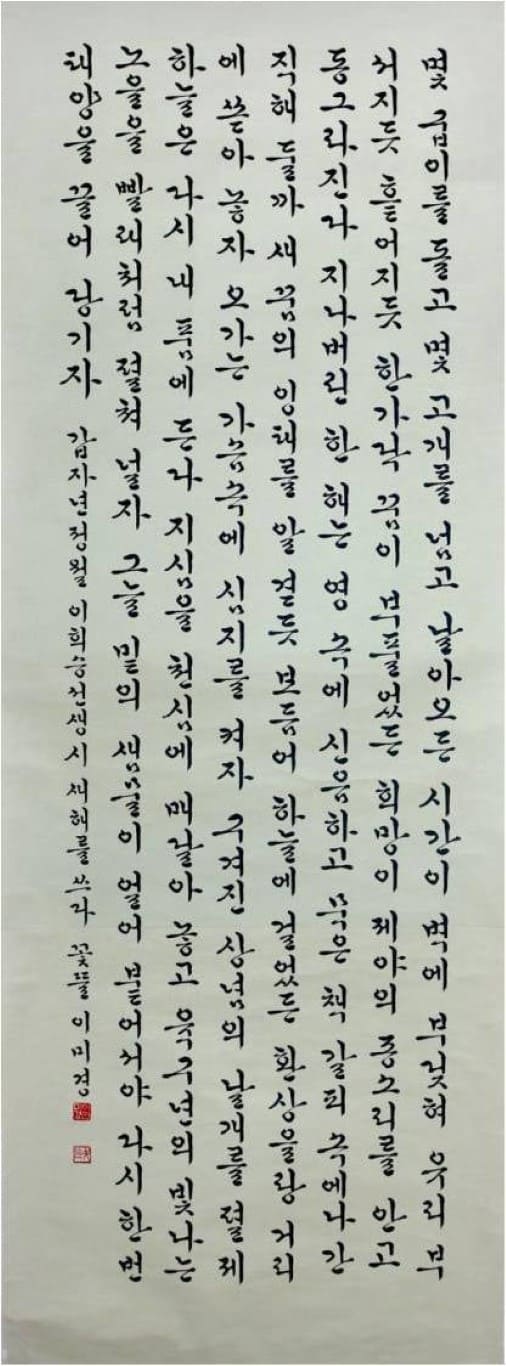 몇 굽이를 돌고 몇 고개를 넘고 날아오든 시간이 벽에 부딪혀 유리 부
서지듯 흩어지듯 한가락 꿈이 부풀었든 희망이 제야의 종소리를 안고
동그라진다 지나버린 한 해는 영 속에 신음하고 묵은 책 갈피 속에나 간
직해 둘까 새 꿈의 잉태를 알 걷듯 보듬어 하늘에 걸었든 환상을랑 거리
에 쏟아 놓자 오가는 가슴속에 심지를 켜자 구겨진 상념의 날개를 펼제
하늘은 다시 내 품에 든다 지심을 천심에 매달아 놓고 육구년의 빛나는
노을을 빨래처럼 펼쳐 널자 그늘 밑의 샘물이 얼어 붙어서야 다시 한번
태양을 끌어 당기자 갑자년정월 이희승선생시 새해를 쓰다 꽃뜰 이미경